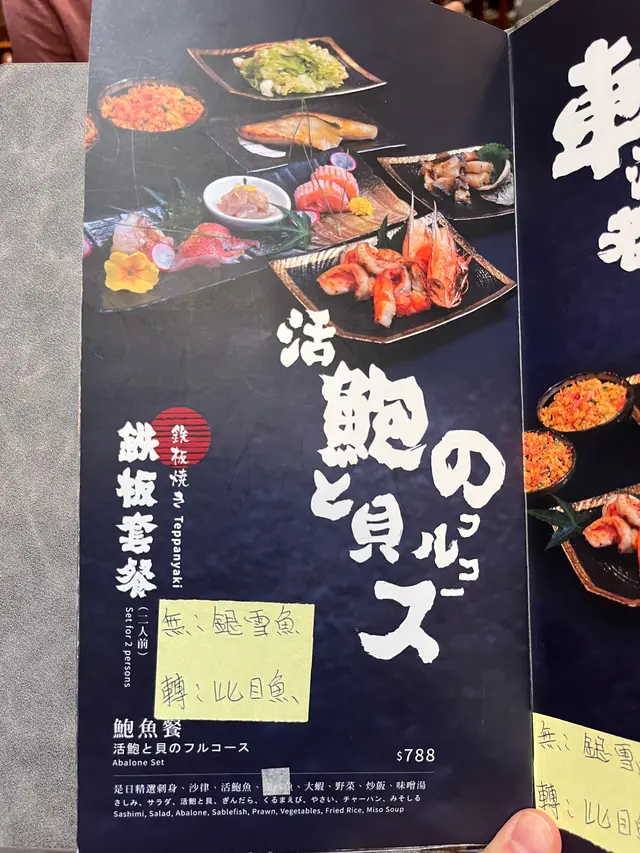 活
鮑
と
貝
の
フルコース
鉄板焼き Teppanyaki
鉄板套餐
(二人前)
Set for 2 persons
無:銀雪魚
轉:比目魚、
鮑魚餐
活鮑と貝のフルコース
Abalone Set
$788
是日精選刺身、沙律、活鮑魚、魚、大蝦、野菜、炒飯、味噌湯
さしみ、サラダ、活鮑と貝、ぎんだら、くるまえび、やさい、チャーハン、みそしる
Sashimi, Salad, Abalone, Sablefish, Prawn, Vegetables, Fried Rice, Miso Soup
無:銀雪
轉:比目